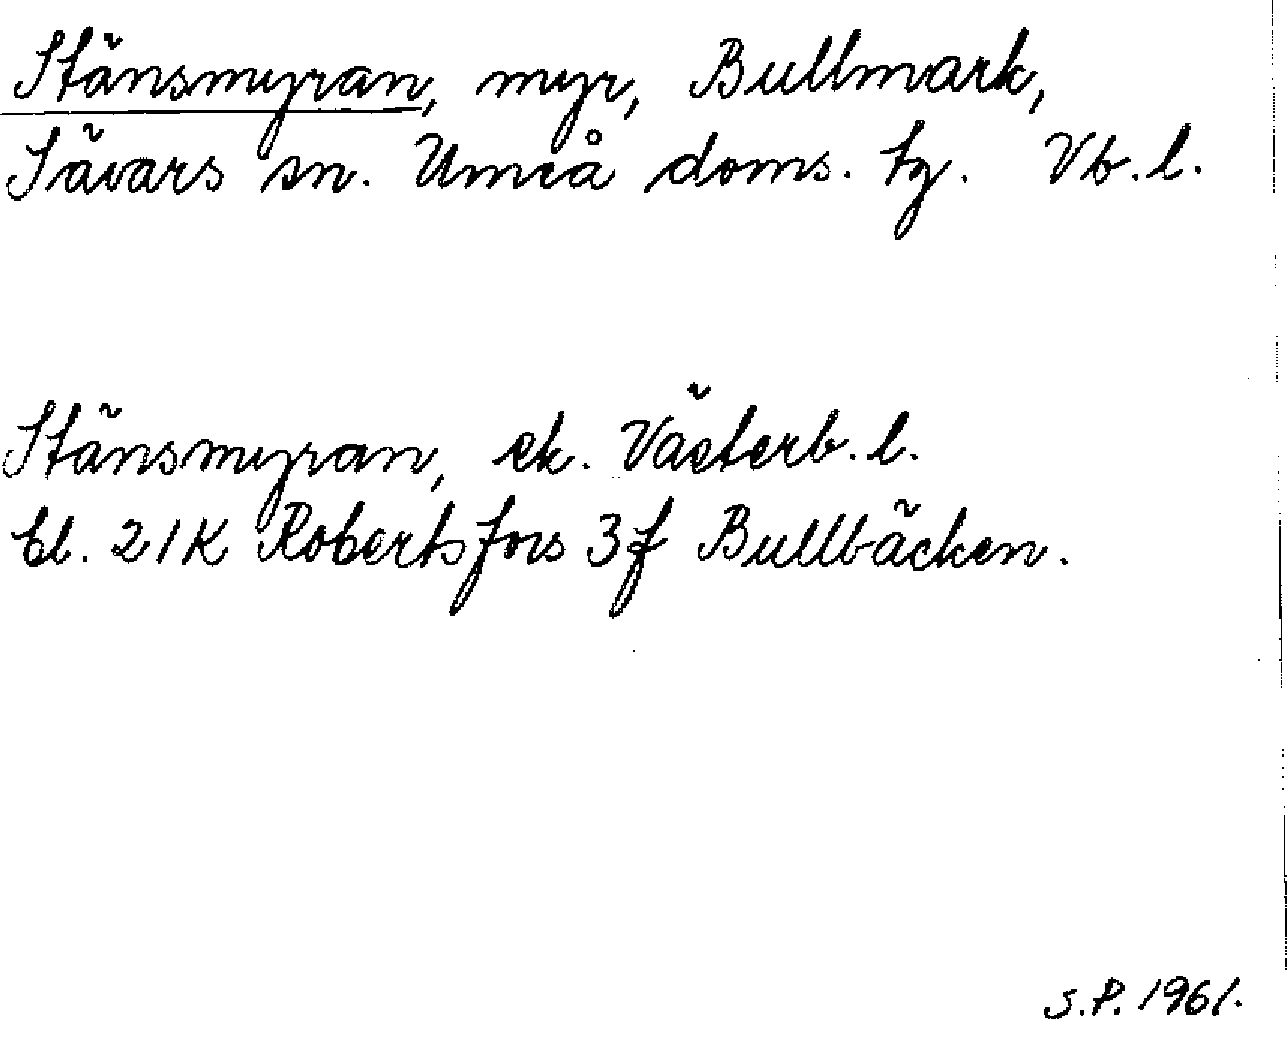 Stänsmyran, myr, Bullmark,
Sävars sn. Umeå doms. tg. Vb. l.
Stänsmyran, ek. Västerb. l.
bl. 21K Robertsfors 3f Bullbäcken.
S.P. 1961.